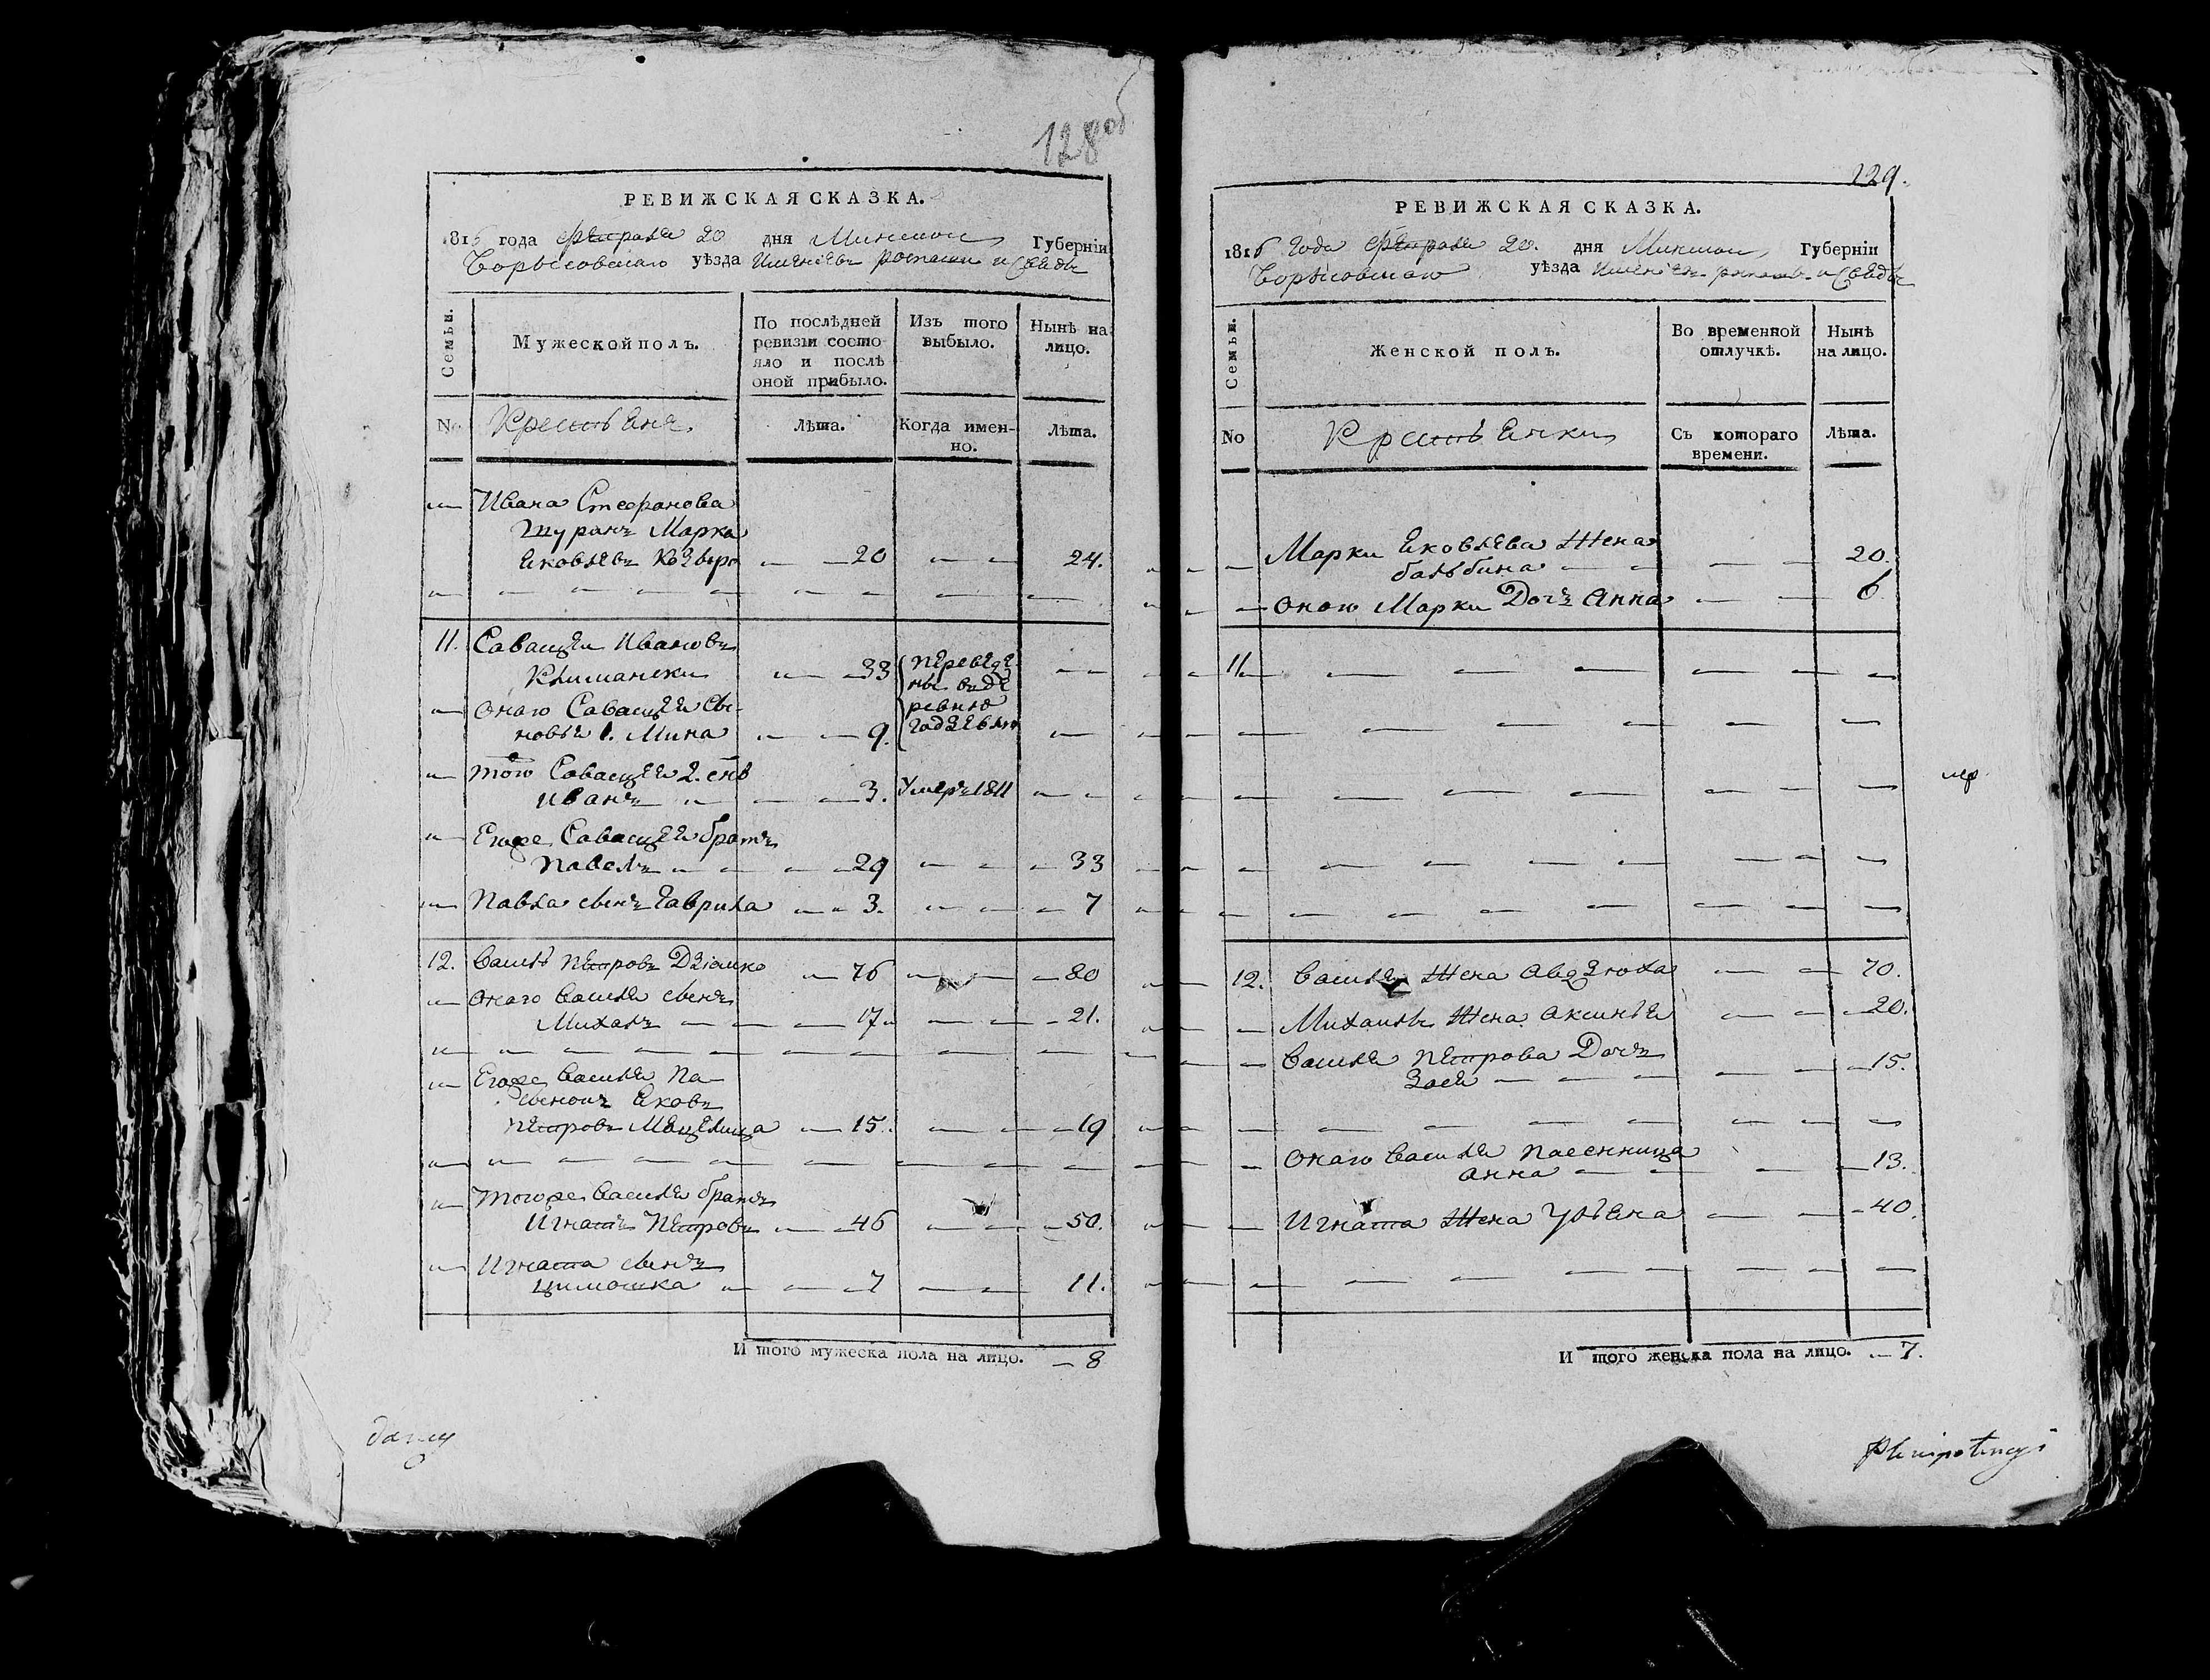 128 об
РЕВИЖСКАЯ СКАЗКА.
1816 года Февраля 20 дня Минской Губерніи
Борысовскаго уѣзда Имѣніевъ
Семьи.
Мужеской полъ.
По послѣдней ревизіи состояло и послѣ оной прибыло.
Изъ того выбыло.
Нынѣ на лицо.
No Крестьяне
Лѣта.
Когда именно.
Лѣта.
Ивана Стефанова
Марка
Яковлевъ — 20 — — 24.
11. Савацей Ивановъ
— 33 Переведены въ деревню
Онаго Савацея сыновья 1. Мина — 9.
того Савацея 2. сынъ
Иванъ — 3. Умеръ 1811
Егоже Савацея братъ
Павелъ — 29 — — 33
Павла сынъ Гаврила — 3. — — 7
12. Василь Петровъ Дзюшко — 76 — — 80
Онаго Василя сынъ
Михалъ — 17 — — 21.
Егоже Василя Пасынокъ Яковъ
Петровъ — 15. — — 19
Тогоже Василя братъ
Игнатъ Петровъ — 46 — — 50.
Игната сынъ
Цимошка — 7 — — 11.
И того мужеска пола на лицо. — 8
129.
РЕВИЖСКАЯ СКАЗКА.
1816 Года Февраля 20. дня Минской Губерніи
Борысовскаго уѣзда Имѣніевъ
Семьи.
Женской полъ.
Во временной отлучкѣ.
Нынѣ на лицо.
No Крестьянки
Съ котораго времени.
Лѣта.
Марки Яковлева Жена
Бальбина — — 20.
Оного Марки Дочъ Анна — — 6
11.
12. Василя Жена Авдзюха — — 70.
Михаила Жена Аксинья — — 20.
Василя Петрова Дочъ
Зося — — 15.
Онаго Василя Пасенница
Анна — — 13.
Игната Жена Ульяна — — 40.
И того женска пола на лицо. — 7.
Plenipotencyi